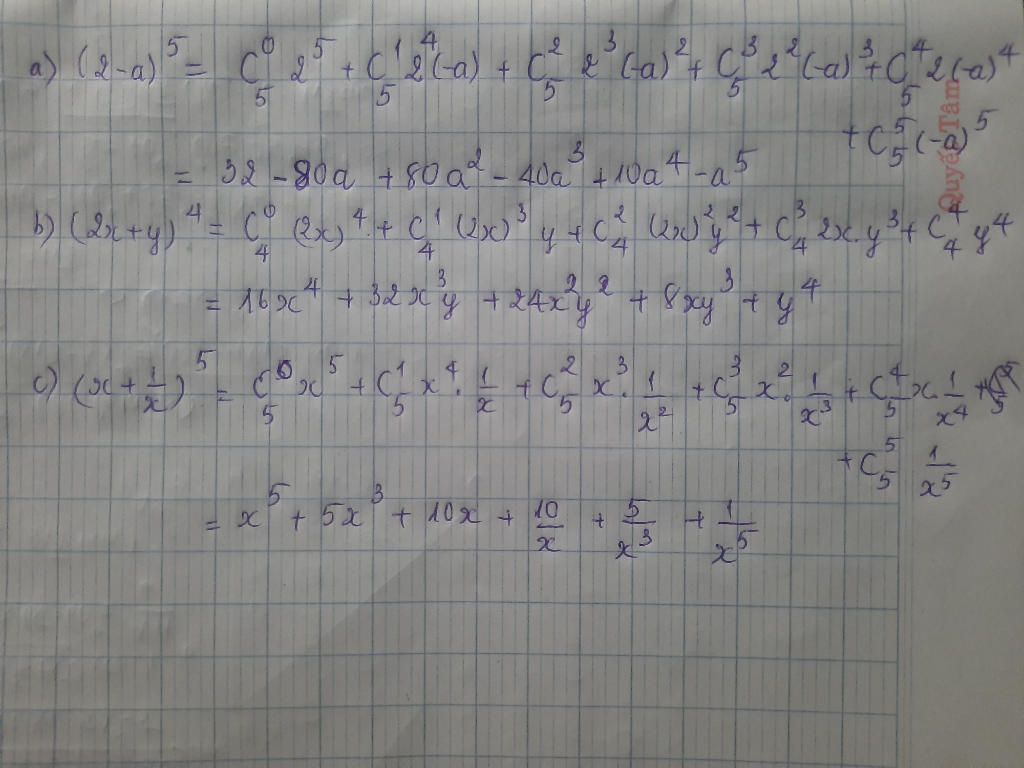 a) (2-a)⁵ = C₅⁰ 2⁵ + C₅¹ 2⁴(-a) + C₅² 2³(-a)² + C₅³ 2²(-a)³ + C₅⁴ 2(-a)⁴
+ C₅⁵(-a)⁵
= 32 - 80a + 80a² - 40a³ + 10a⁴ - a⁵
b) (2x+y)⁴ = C₄⁰ (2x)⁴ + C₄¹ (2x)³ y + C₄² (2x)² y² + C₄³ 2x.y³ + C₄⁴ y⁴
= 16x⁴ + 32x³y + 24x²y² + 8xy³ + y⁴
c) (x + 1/x)⁵ = C₅⁰ x⁵ + C₅¹ x⁴ . 1/x + C₅² x³ . 1/x² + C₅³ x² . 1/x³ + C₅⁴ x . 1/x⁴
+ C₅⁵ 1/x⁵
= x⁵ + 5x³ + 10x + 10/x + 5/x³ + 1/x⁵
Quyết Tâm